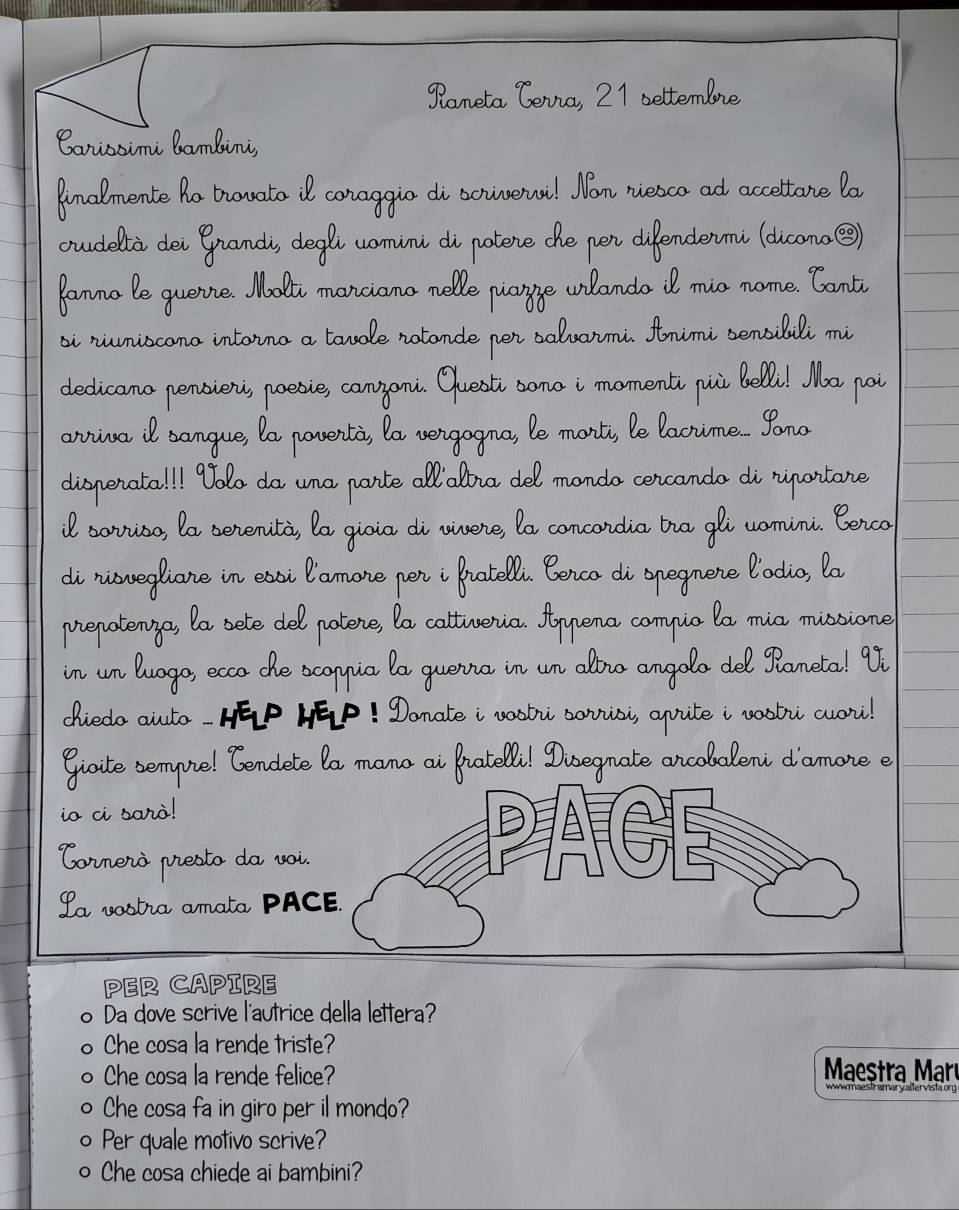 Pianeta Terra, 21 settembre
Carissimi bambini,
finalmente ho trovato il coraggio di scrivervi! Non riesco ad accettare la
crudeltà dei Grandi, degli uomini di potere che per difendermi (dicono☹)
fanno le guerre. Molti marciano nelle piazze urlando il mio nome. Tanti
si riuniscono intorno a tavole rotonde per salvarmi. Animi sensibili mi
dedicano pensieri, poesie, canzoni. Questi sono i momenti più belli! Ma poi
arriva il sangue, la povertà, la vergogna, le morti, le lacrime... Sono
disperata!!! Volo da una parte all'altra del mondo cercando di riportare
il sorriso, la serenità, la gioia di vivere, la concordia tra gli uomini. Cerco
di risvegliare in essi l'amore per i fratelli. Cerco di spegnere l'odio, la
prepotenza, la sete del potere, la cattiveria. Appena compio la mia missione
in un luogo, ecco che scoppia la guerra in un altro angolo del Pianeta! Vi
chiedo aiuto ... HELP HELP! Donate i vostri sorrisi, aprite i vostri cuori!
Gioite sempre! Tendete la mano ai fratelli! Disegnate arcobaleni d'amore e
io ci sarò!
PACE
Tornerò presto da voi.
La vostra amata PACE.
PER CAPIRE
o Da dove scrive l'autrice della lettera?
o Che cosa la rende triste?
o Che cosa la rende felice?
o Che cosa fa in giro per il mondo?
o Per quale motivo scrive?
o Che cosa chiede ai bambini?
Maestra Mary
www.maestramary.altervista.org